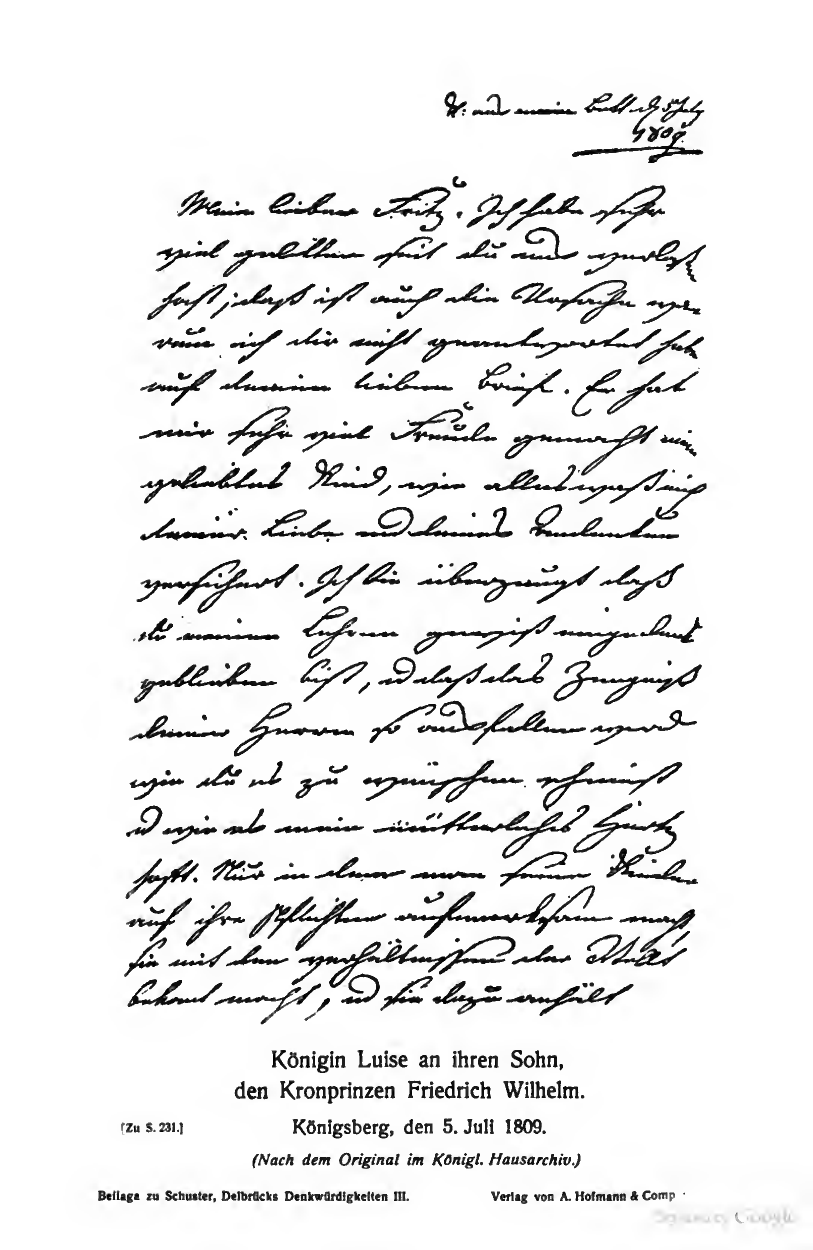 K: aus meinem Bett d 5 July
1809.
Mein lieber Fritz. Ich habe sehr
viel gelitten seit du uns verlaß
hast, daß ist auch die Ursache wa-
rum ich dir nicht geantwortet habe
auf deinen lieben Brief. Er hat
mir sehr viel Freude gemacht mein
geliebtes Kind, wie alles waß mich
deiner Liebe und deines Andenken
versichert. Ich bin überzeugt daß
du meinen Lehren gewiß eingedenk
geblieben bist, u daß das Zeugniß
deiner Herrn so ausfallen wird
wie du es zu wünschen scheinst
u wie es mein mütterliches Hertz
hofft. Nur in dem man seine Kinder
auf ihre Pflichten aufmerksam macht,
sie mit den verhältnissen der Welt
bekant macht, und sie dazu anhält
Königin Luise an ihren Sohn,
den Kronprinzen Friedrich Wilhelm.
[Zu S. 231.] Königsberg, den 5. Juli 1809.
(Nach dem Original im Königl. Hausarchiv.)
Beilage zu Schuster, Delbrücks Denkwürdigkeiten III. Verlag von A. Hofmann & Comp
Digitized by Google